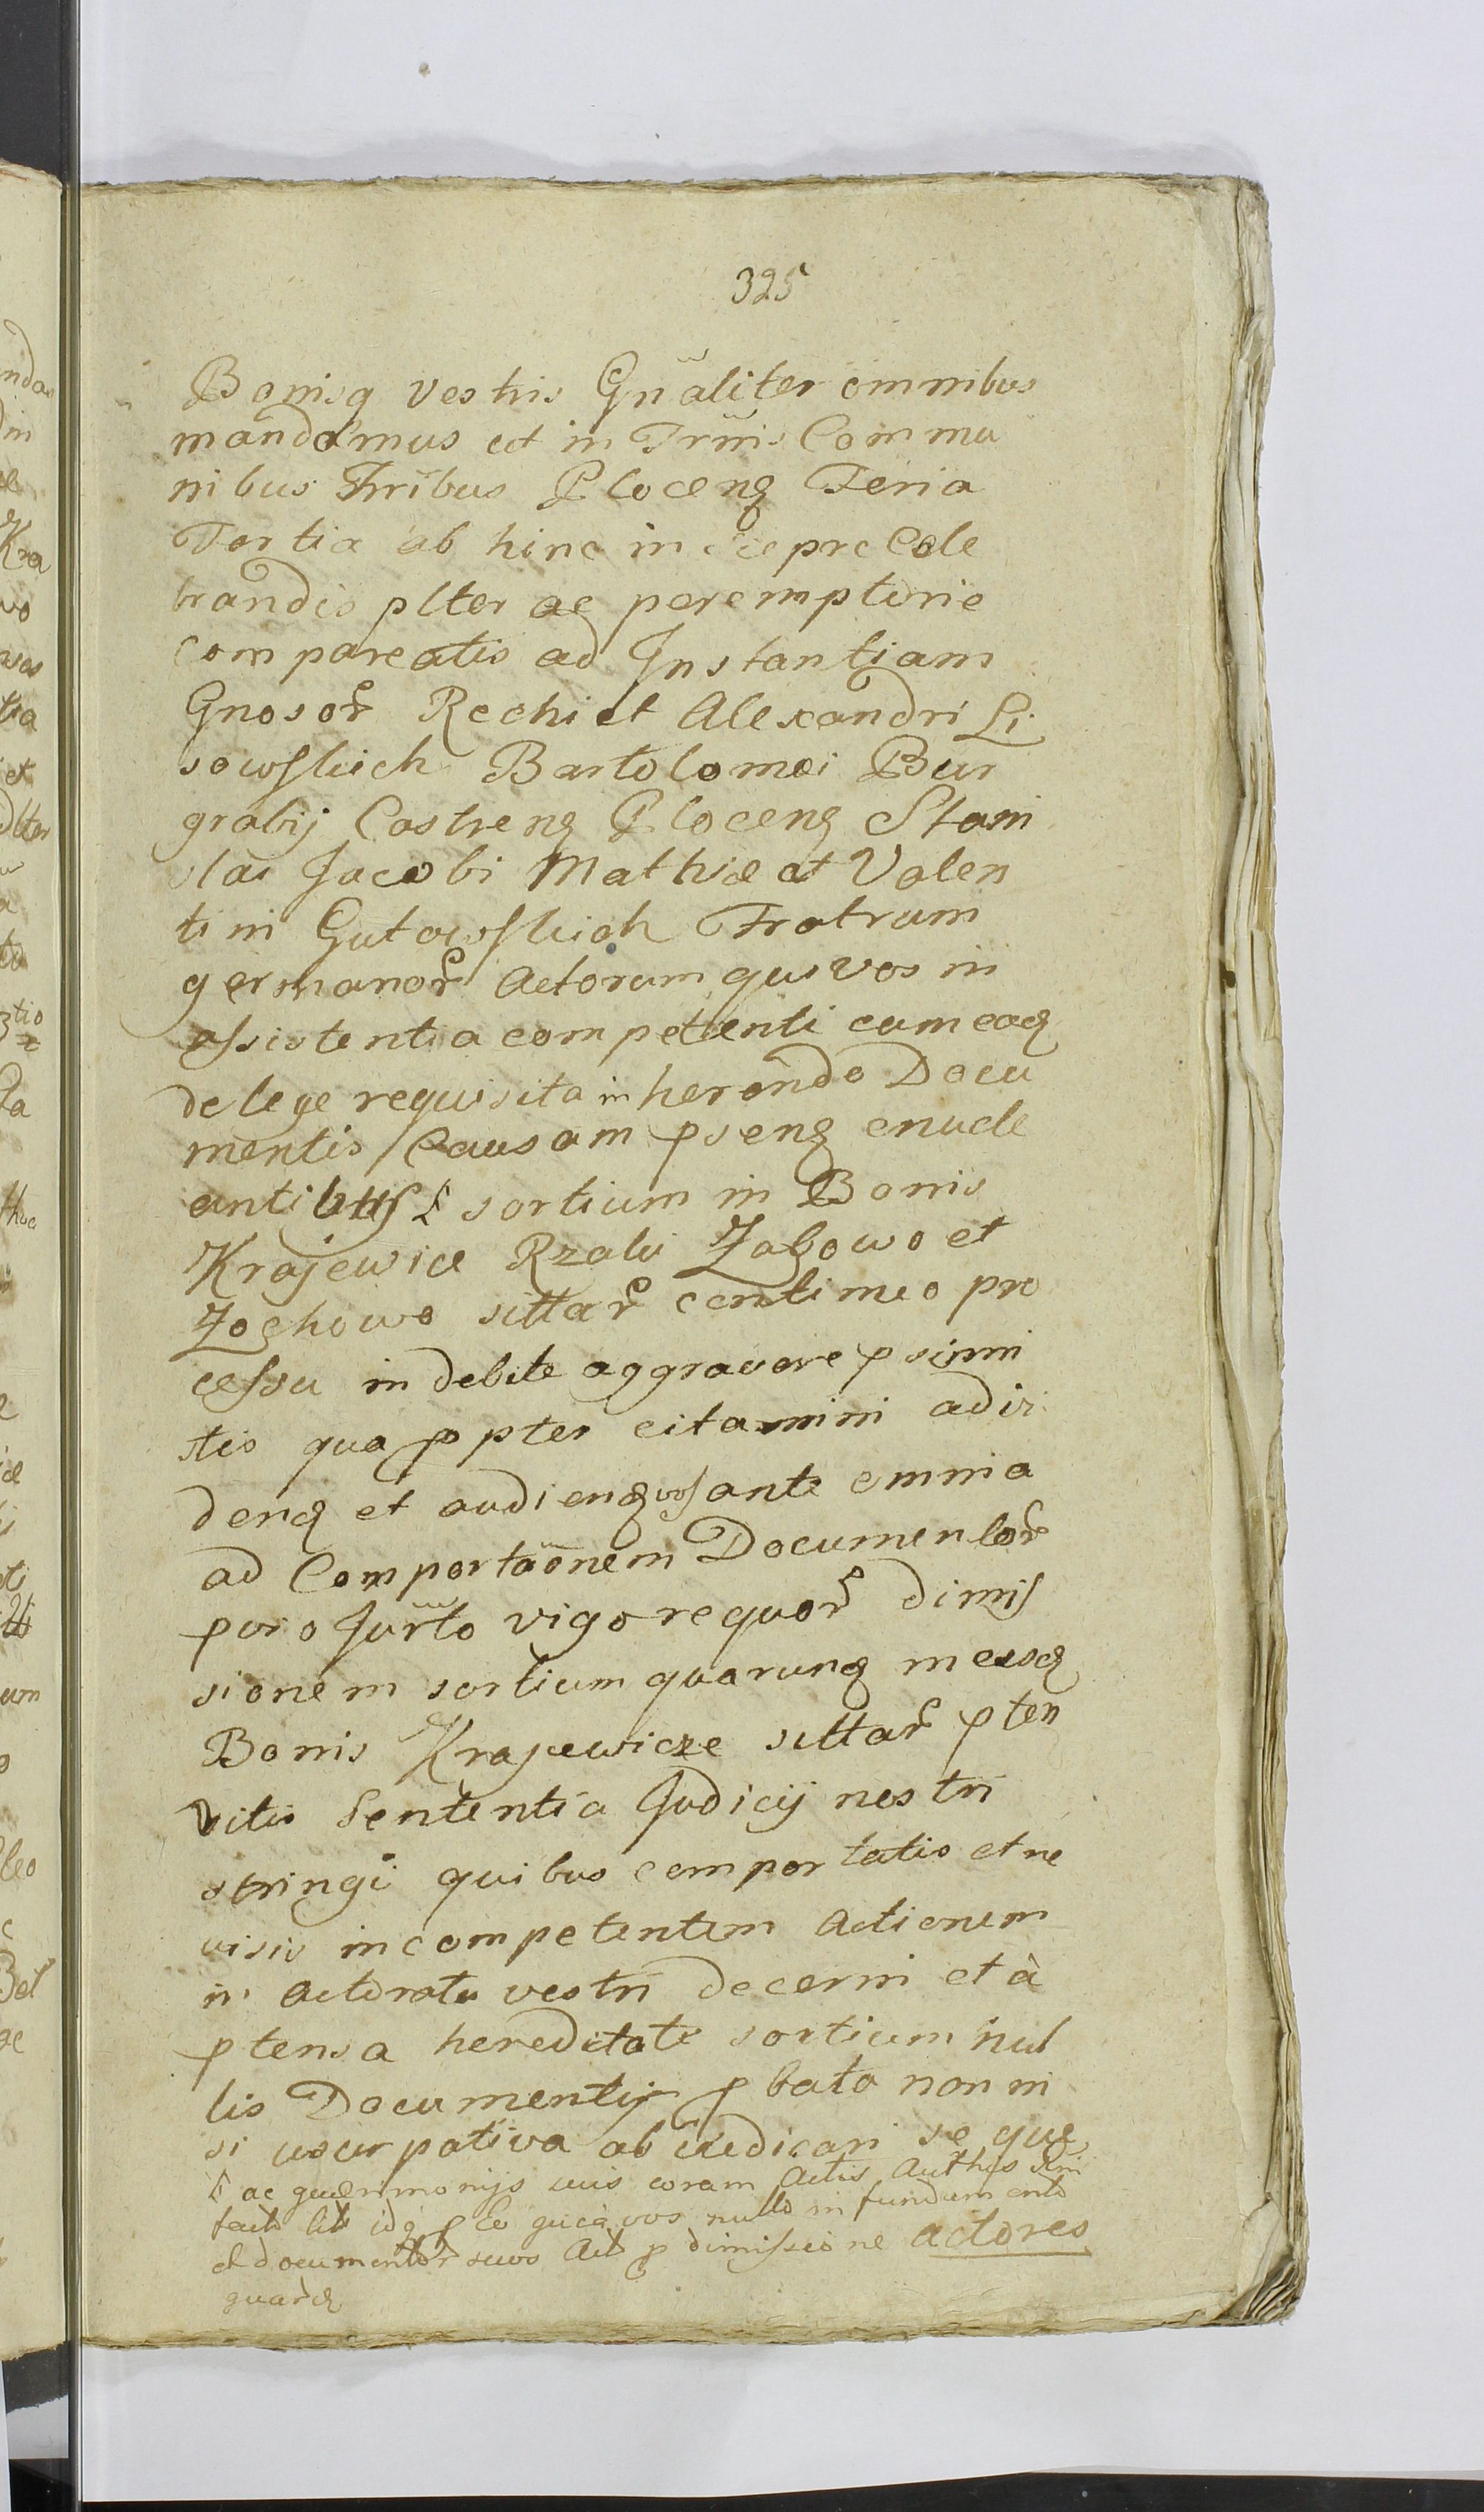 325
Bonisq vestris Gnaliter omnibus
mandamus ut in Trnis Commu
nibus Trribus Ploceng Feria
Tertia ab hinc in cepre Cele
brandis plter ac peremptorie
compareatis ad Instantiam
Gnosor Rochi et Alexandri Li
sowskich Bartolomei Bur
grabij Castreng Ploceng Stani
slai Jacobi Mathiæ et Valen
tini Gutowskich Fratrum
germanor Actorum qui vos in
assistentia competenti cum eaq
de lege requisita inherendo Docu
mentis Causam pseng enucle
antibus sortium in Bonis
Krajewice Rzaki Zagowo et
Zochowo sittar centimeo pro
cessu indebite aggravare psum
stis qua ppter citamini ad vi
denq et audienq vos ante omnia
ad Comportaonem Documentor
puro Jurto vigore quor dimis
sionem sortium quarunq in eisq
Bonis Krajewicze sittar pten
ditis Sententia Judicij nostri
stringi quibus comportatis et re
visis incompetentem Actionem
Actoratu vestri decerni et à
ptensa hereditate sortium nul
lis Documentis pbata non ni
si usurpativa abiudicari se que
ac quærimonijs suis coram Actis Authcis
facto idq p Eo quia vos nullo in fundamento
et documentor suos dimissione actores
quarq